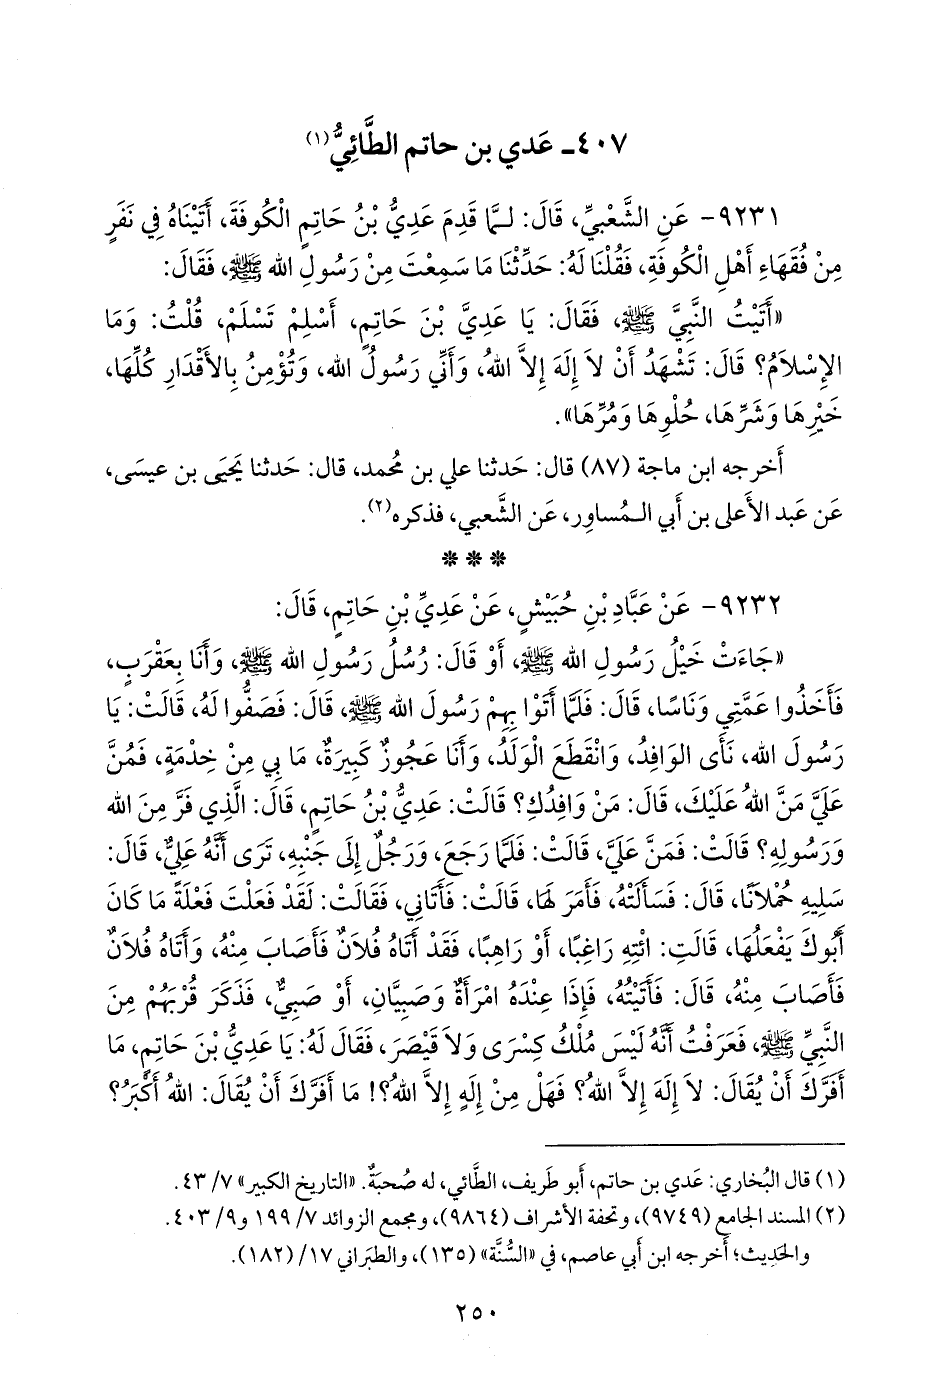 ٤٠٧ـ عَدي بن حاتم الطَّائِيُّ(١)
٩٢٣١- عَنِ الشَّعْبِيِّ، قَالَ: لـمَّا قَدِمَ عَدِيُّ بْنُ حَاتِمٍ الْكُوفَةَ، أَتَيْنَاهُ فِي نَفَرٍ
مِنْ فُقَهَاءِ أَهْلِ الْكُوفَةِ، فَقُلْنَا لَهُ: حَدِّثْنَا مَا سَمِعْتَ مِنْ رَسُولِ الله ﷺ، فَقَالَ:
«أَتَيْتُ النَّبِيَّ ﷺ، فَقَالَ: يَا عَدِيَّ بْنَ حَاتِمٍ، أَسْلِمْ تَسْلَمْ، قُلْتُ: وَمَا
الإِسْلاَمُ؟ قَالَ: تَشْهَدُ أَنْ لاَ إِلَهَ إِلاَّ اللهُ، وَأَنِّي رَسُولُ الله، وَتُؤْمِنُ بِالأَقْدَارِ كُلِّهَا،
خَيْرِهَا وَشَرِّهَا، حُلْوِهَا وَمُرِّهَا».
أَخرجه ابن ماجة (٨٧) قال: حَدثنا علي بن مُحمد، قال: حَدثنا يَحيَى بن عيسَى،
عَن عَبد الأَعلى بن أَبي الـمُساوِر، عَن الشَّعبي، فذكره(٢).
* * *
٩٢٣٢- عَنْ عَبَّادِ بْنِ حُبَيْشٍ، عَنْ عَدِيِّ بْنِ حَاتِمٍ، قَالَ:
«جَاءَتْ خَيْلُ رَسُولِ الله ﷺ، أَوْ قَالَ: رُسُلُ رَسُولِ الله ﷺ، وَأَنَا بِعَقْرَبٍ،
فَأَخَذُوا عَمَّتِي وَنَاسًا، قَالَ: فَلَمَّا أَتَوْا بِهِمْ رَسُولَ الله ﷺ، قَالَ: فَصَفُّوا لَهُ، قَالَتْ: يَا
رَسُولَ الله، نَأَى الوَافِدُ، وَانْقَطَعَ الْوَلَدُ، وَأَنَا عَجُوزٌ كَبِيرَةٌ، مَا بِي مِنْ خِدْمَةٍ، فَمُنَّ
عَلَيَّ مَنَّ اللهُ عَلَيْكَ، قَالَ: مَنْ وَافِدُكِ؟ قَالَتْ: عَدِيُّ بْنُ حَاتِمٍ، قَالَ: الَّذِي فَرَّ مِنَ الله
وَرَسُولِهِ؟ قَالَتْ: فَمَنَّ عَلَيَّ، قَالَتْ: فَلَمَّا رَجَعَ، وَرَجُلٌ إِلَى جَنْبِهِ، تَرَى أَنَّهُ عَلِيٌّ، قَالَ:
سَلِيهِ حُمْلاَنًا، قَالَ: فَسَأَلَتْهُ، فَأَمَرَ لَهَا، قَالَتْ: فَأَتَانِي، فَقَالَتْ: لَقَدْ فَعَلْتَ فَعْلَةً مَا كَانَ
أَبُوكَ يَفْعَلُهَا، قَالَتِ: ائْتِهِ رَاغِبًا، أَوْ رَاهِبًا، فَقَدْ أَتَاهُ فُلاَنٌ فَأَصَابَ مِنْهُ، وَأَتَاهُ فُلاَنٌ
فَأَصَابَ مِنْهُ، قَالَ: فَأَتَيْتُهُ، فَإِذَا عِنْدَهُ امْرَأَةٌ وَصَبِيَّانِ، أَوْ صَبِيٌّ، فَذَكَرَ قُرْبَهُمْ مِنَ
النَّبِيِّ ﷺ، فَعَرَفْتُ أَنَّهُ لَيْسَ مُلْكُ كِسْرَى وَلاَ قَيْصَرَ، فَقَالَ لَهُ: يَا عَدِيُّ بْنَ حَاتِمٍ، مَا
أَفَرَّكَ أَنْ يُقَالَ: لاَ إِلَهَ إِلاَّ اللهُ؟ فَهَلْ مِنْ إِلَهٍ إِلاَّ اللهُ؟! مَا أَفَرَّكَ أَنْ يُقَالَ: اللهُ أَكْبَرُ؟
(١) قال البُخاري: عَدي بن حاتم، أَبو طَريف، الطَّائي، له صُحبَةٌ. «التاريخ الكبير» ٧/ ٤٣.
(٢) المسند الجامع (٩٧٤٩)، وتحفة الأشراف (٩٨٦٤)، ومجمع الزوائد ٧/ ١٩٩ و٩/ ٤٠٣.
والحَدِيث؛ أَخرجه ابن أَبي عاصم، في «السُّنَّة» (١٣٥)، والطبَراني ١٧/ (١٨٢).
٢٥٠